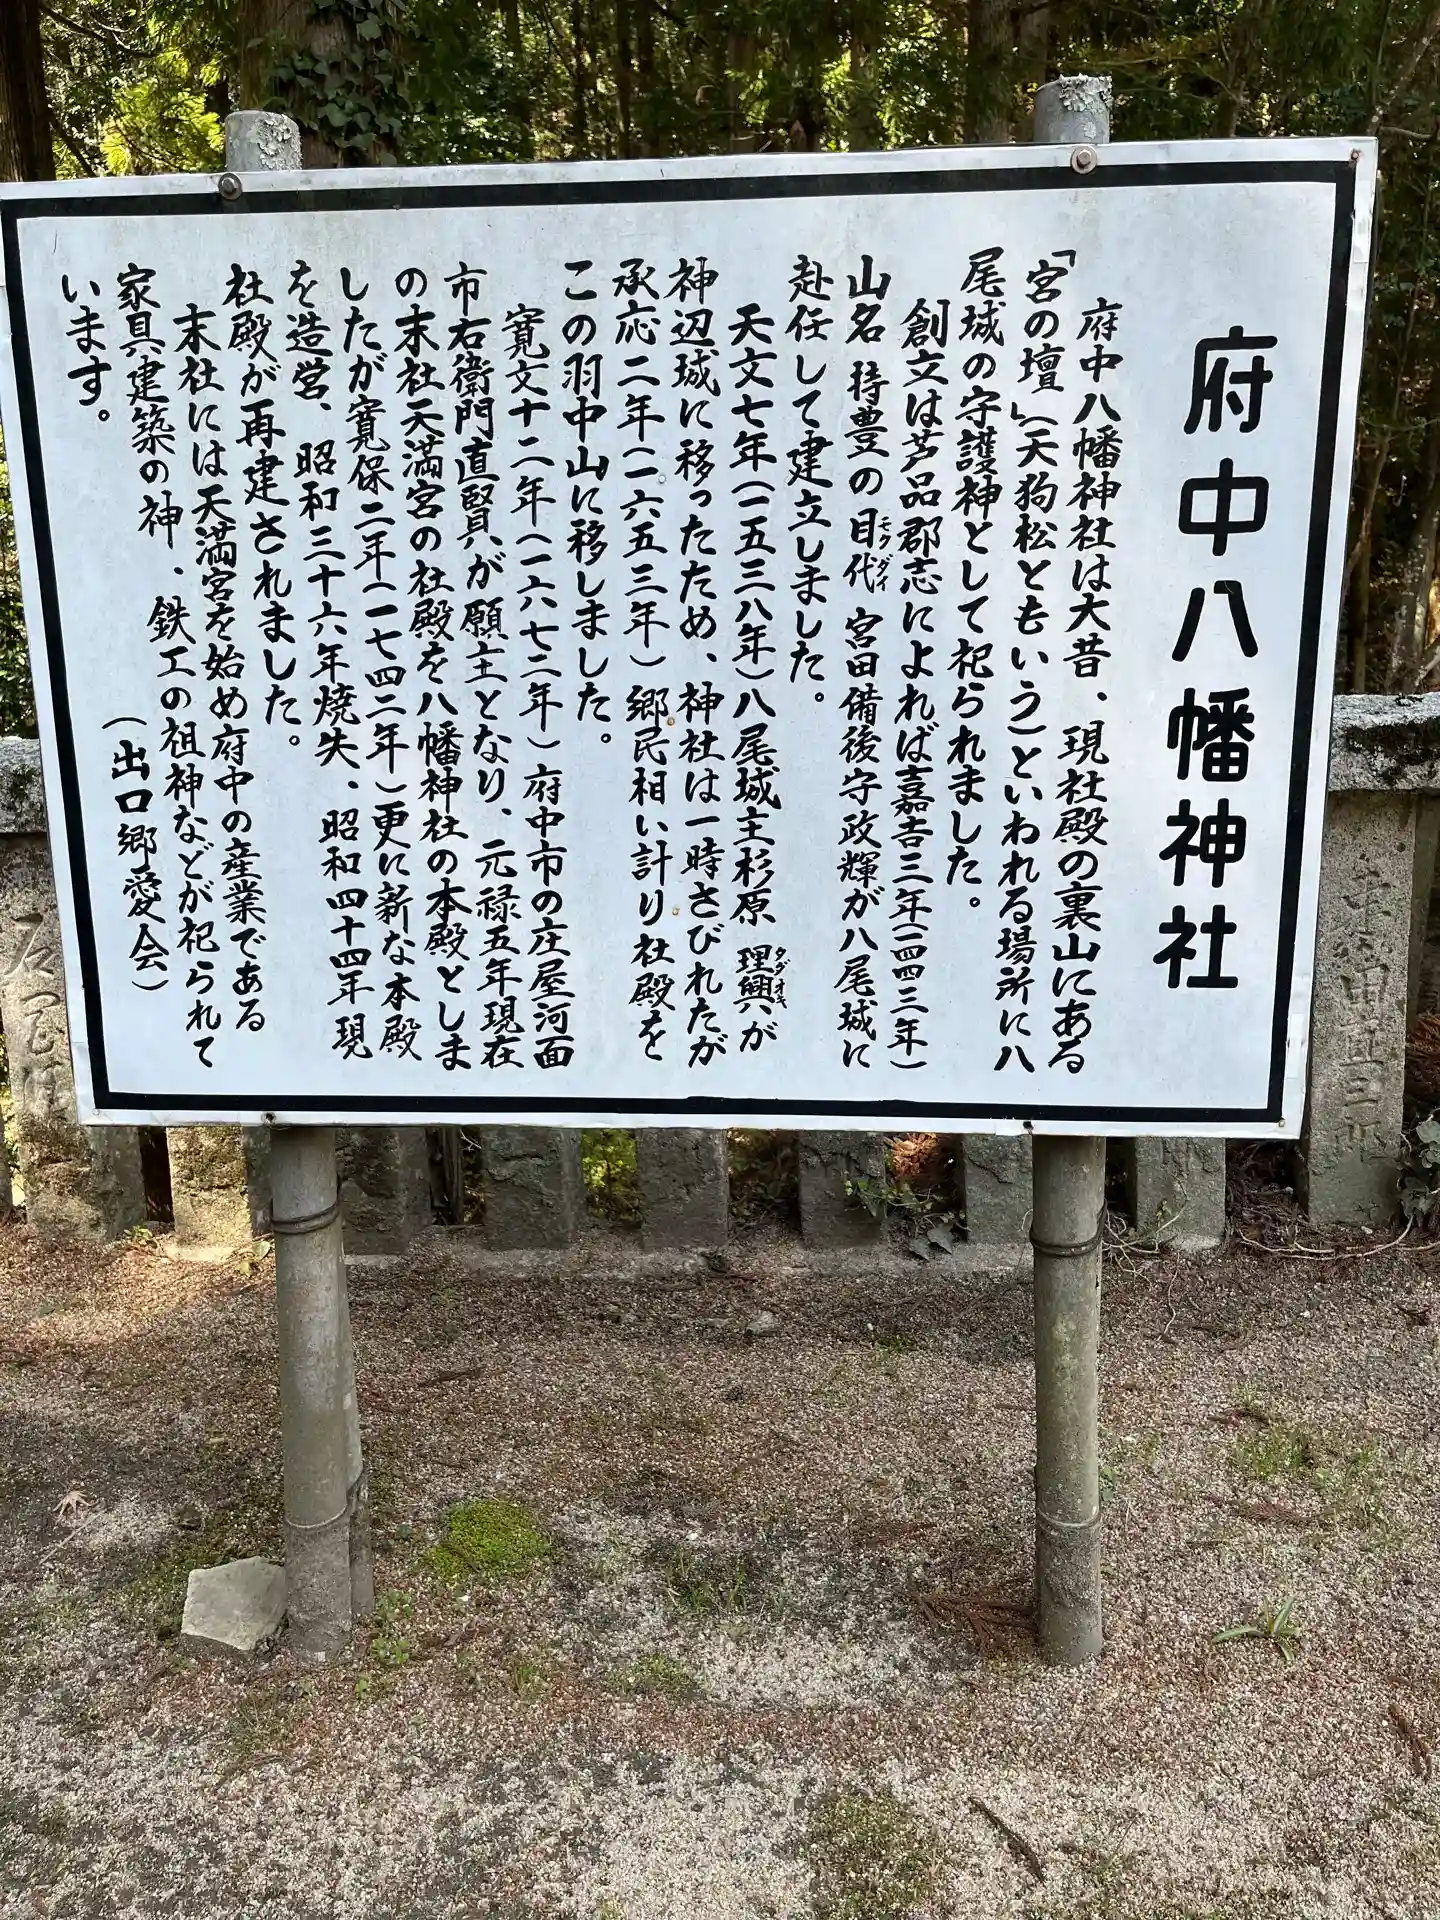 府中八幡神社
府中八幡神社は大昔、現社殿の裏山にある
「宮の壇」(天狗松ともいう)といわれる場所に八
尾城の守護神として祀られました。
創立は芦品郡志によれば嘉吉三年(一四四三年)
山名 持豊の目代 宮田備後守政輝が八尾城に
モクダイ
赴任して建立しました。
天文七年(一五三八年)八尾城主杉原 理興が
タダオキ
神辺城に移ったため、神社は一時さびれたが
承応二年(一六五三年)郷民相い計り社殿を
この羽中山に移しました。
寛文十二年(一六七二年)府中市の庄屋河面
市右衛門直賢が願主となり、元禄五年現在
の末社天満宮の社殿を八幡神社の本殿としま
したが寛保二年(一七四二年)更に新な本殿
を造営、昭和三十六年焼失、昭和四十四年現
社殿が再建されました。
末社には天満宮を始め府中の産業である
家具建築の神、鉄工の祖神などが祀られて
います。
(出口郷愛会)